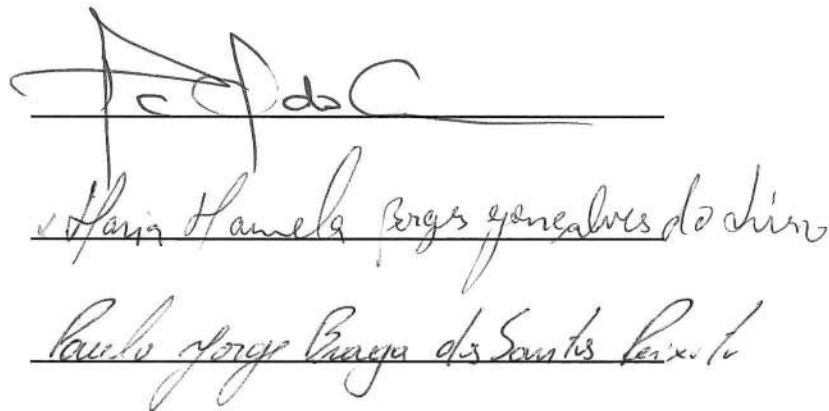 da C
Maria Manuela Borges Gonçalves do Livro
Paulo Jorge Braga dos Santos Peixoto